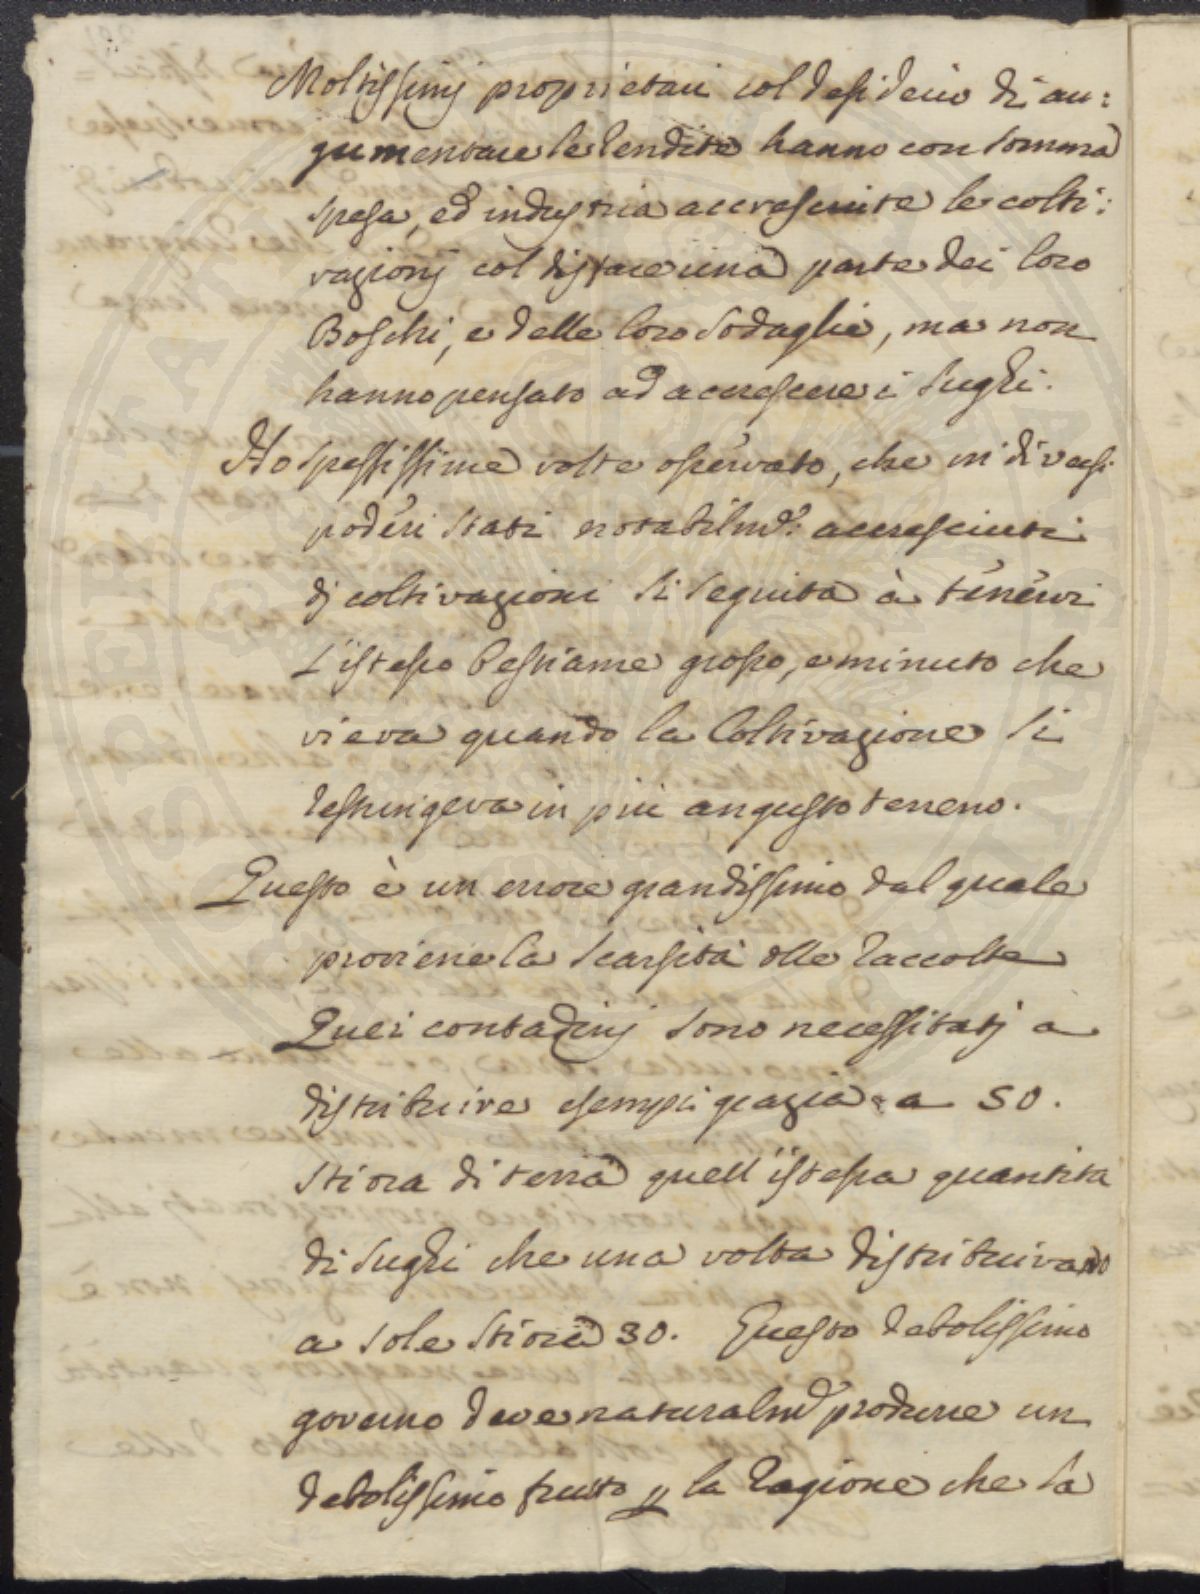 Moltissimj proprietari col desiderio di au:
gumentare le Rendite hanno con somma
spesa, ed industria accresciute le colti:
vazionj col disfare una parte dei loro
Boschi, e delle loro sodaglie, ma non
hanno pensato ad accrescere i sughi.
Ho spessissime volte osservato, che in diversi
poderi stati notabilmẽ: accresciuti
dj coltivazioni si seguita à tenervi
L'istesso bestiame grosso, e minuto che
vi era quando la Coltivazione si
restringeva in più angusto terreno.
Questo è un errore grandissimo dal quale
proviene la scarsità delle raccolte
Quei contadinj sono necessitatj a
distribuire esempi grazia a 50.
stiora di terra quell'istessa quantità
di sughi che una volta distribuivano
a sole stiora 30. Questo debolissimo
governo deve naturalmẽ produrre un
debolissimo frutto p la ragione che la
SPERITATE AUGENDAE